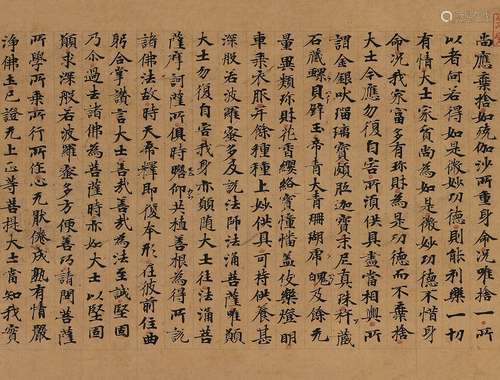 尚應棄捨如殑伽沙所重身命況唯捨一所
以者何若得如是微妙功德則能利樂一切
有情大士家貧尚為如是微妙功德不惜身
命況我家富多有珎財為是功德而不棄捨
大士今應勿復自害所須供具盡當相與所
謂金銀吠瑠璃寶頗胝迦寶末尼真珠杵藏
石藏螺貝璧玉帝青大青珊瑚席魄及餘无
量異類珎財花香纓絡寶幢幡盖伎樂燈明
車乘衣服并餘種種上妙供具可持供養甚
深般若波羅蜜多及說法師法涌菩薩唯願
大士勿復自害我身亦願隨大士往法涌菩
薩摩訶薩所俱時瞻仰共植善根為得所說
諸佛法故時天帝釋即復本形在彼前住曲
躬合掌讚言大士善哉善哉為法至誠堅固
乃尒過去諸佛為菩薩時亦如大士以堅固
願求深般若波羅蜜多方便善巧請問菩薩
所學所乘所行所住心无猒倦成熟有情嚴
淨佛土已證无上正等菩提大士當知我實